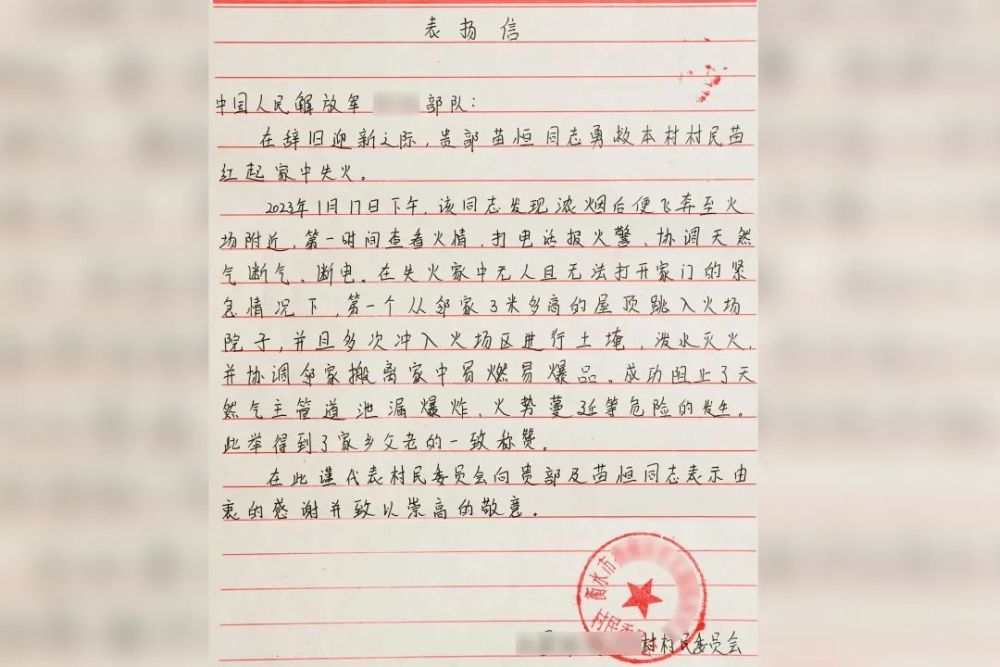 表扬信
中国人民解放军 部队：
在辞旧迎新之际，贵部苗恒同志勇救本村村民苗
红起家中失火。
2023年1月17日下午，该同志发现浓烟后便飞奔至火
场附近，第一时间查看火情，打电话报火警、协调天然
气断气、断电。在失火家中无人且无法打开家门的紧
急情况下，第一个从邻家3米多高的屋顶跳入火场
院子，并且多次冲入火场区进行土埯，泼水灭火，
并协调邻家搬离家中易燃易爆品。成功阻止了天
然气主管道泄漏爆炸、火势蔓延等危险的发生。
此举得到了家乡父老的一致称赞。
在此谨代表村民委员会向贵部及苗恒同志表示由
衷的感谢并致以崇高的敬意。
衡水市
村民委
村村民委员会